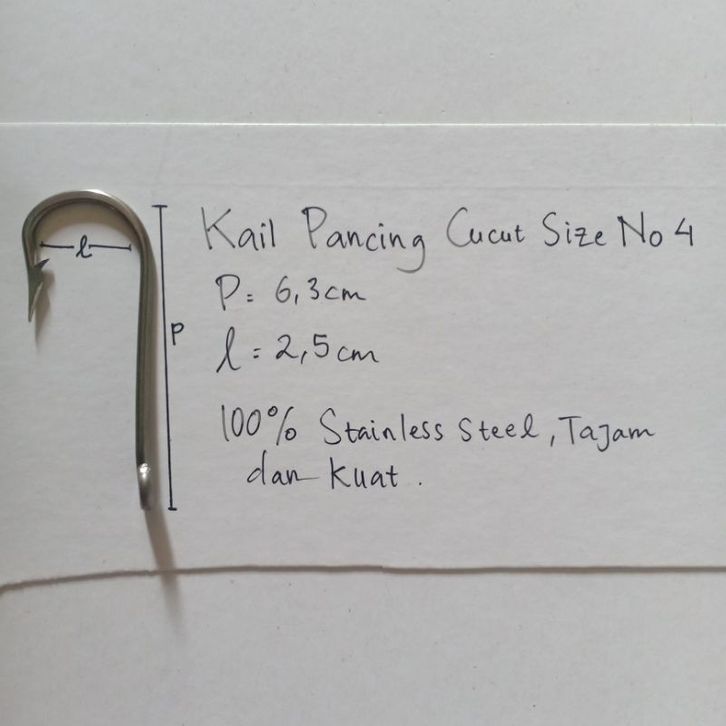 Kail Pancing Cucut Size No 4
l
P = 6,3 cm
P
l = 2,5 cm
100% Stainless Steel, Tajam
dan Kuat.